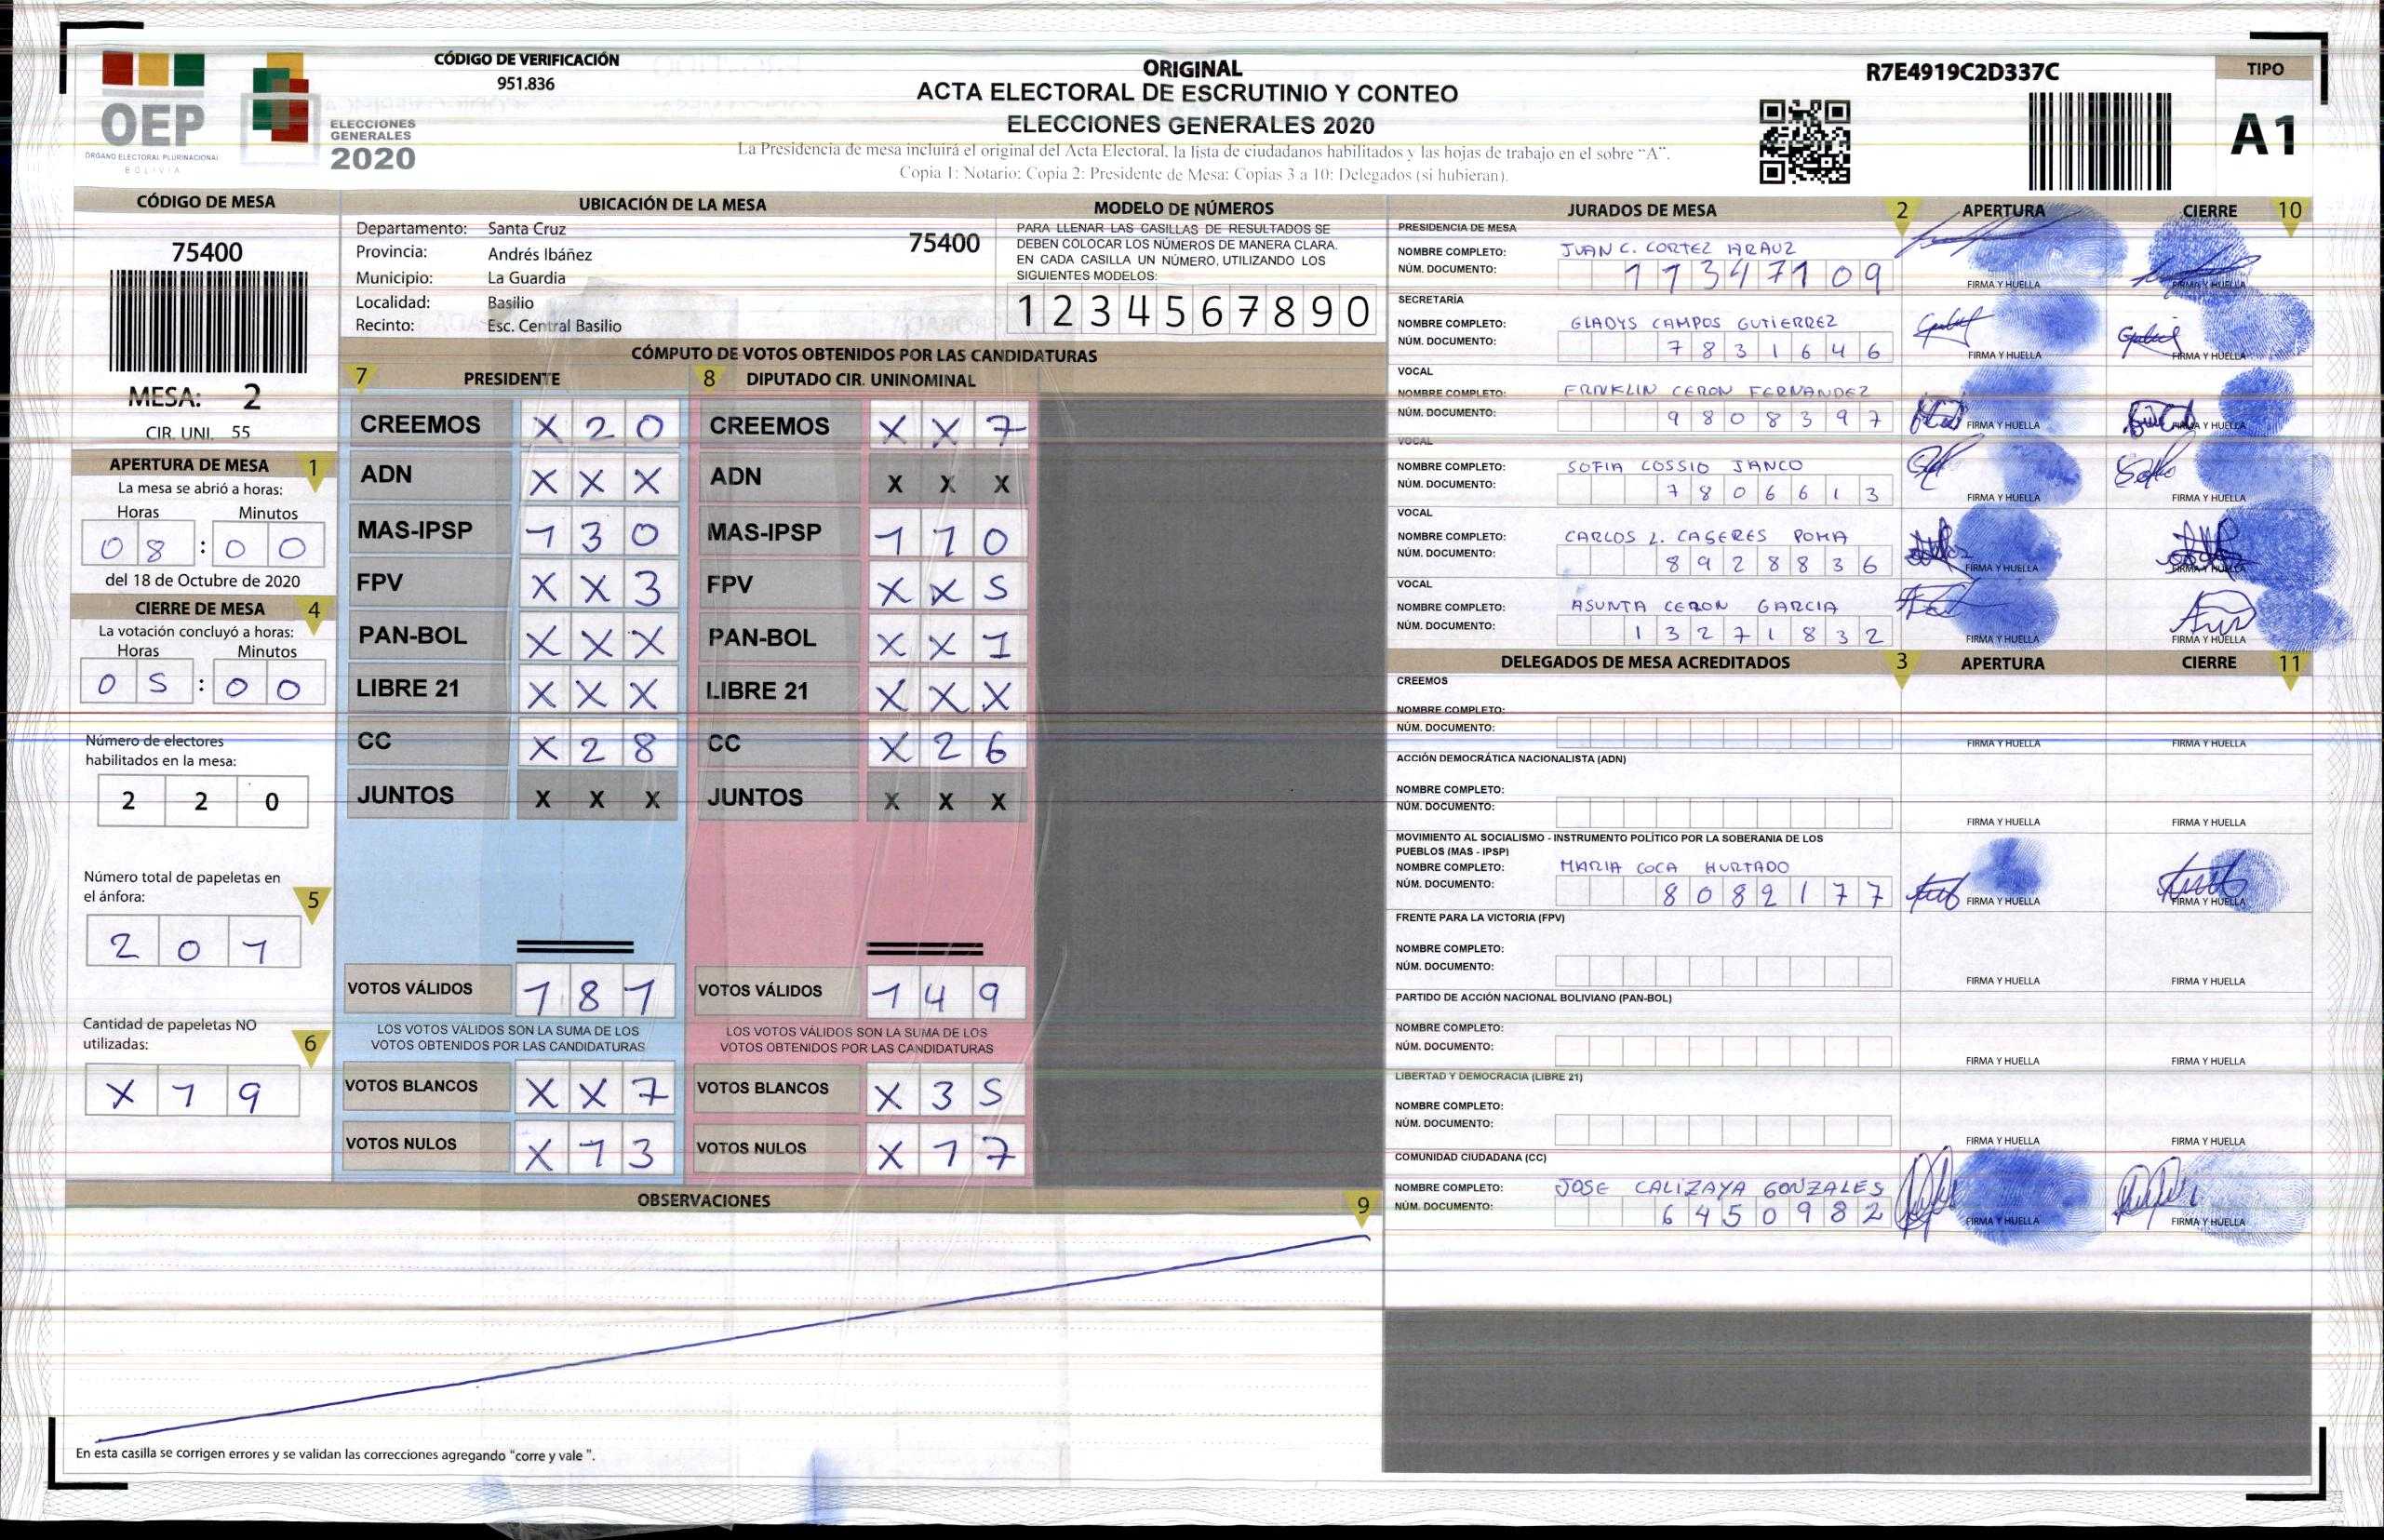 CÓDIGO DE VERIFICACIÓN
951.836
OEP
ÓRGANO ELECTORAL PLURINACIONAL
BOLIVIA
ELECCIONES
GENERALES
2020
ORIGINAL
ACTA ELECTORAL DE ESCRUTINIO Y CONTEO
ELECCIONES GENERALES 2020
La Presidencia de mesa incluirá el original del Acta Electoral, la lista de ciudadanos habilitados y las hojas de trabajo en el sobre “A”.
Copia 1: Notario: Copia 2: Presidente de Mesa: Copias 3 a 10: Delegados (si hubieran).
R7E4919C2D337C
TIPO
A1
CÓDIGO DE MESA
75400
MESA: 2
CIR. UNI. 55
UBICACIÓN DE LA MESA
Departamento: Santa Cruz
75400
Provincia: Andrés Ibáñez
Municipio: La Guardia
Localidad: Basilio
Recinto: Esc. Central Basilio
MODELO DE NÚMEROS
PARA LLENAR LAS CASILLAS DE RESULTADOS SE
DEBEN COLOCAR LOS NÚMEROS DE MANERA CLARA.
EN CADA CASILLA UN NÚMERO, UTILIZANDO LOS
SIGUIENTES MODELOS:
1 2 3 4 5 6 7 8 9 0
APERTURA DE MESA 1
La mesa se abrió a horas:
Horas Minutos
0 8 : 0 0
del 18 de Octubre de 2020
CIERRE DE MESA 4
La votación concluyó a horas:
Horas Minutos
0 5 : 0 0
Número de electores
habilitados en la mesa:
2 2 0
Número total de papeletas en
el ánfora: 5
2 0 1
Cantidad de papeletas NO
utilizadas: 6
X 1 9
CÓMPUTO DE VOTOS OBTENIDOS POR LAS CANDIDATURAS
7 PRESIDENTE 8 DIPUTADO CIR. UNINOMINAL
CREEMOS X 2 0 CREEMOS X X 7
ADN X X X ADN X X X
MAS-IPSP 1 3 0 MAS-IPSP 1 1 0
FPV X X 3 FPV X X 5
PAN-BOL X X X PAN-BOL X X 1
LIBRE 21 X X X LIBRE 21 X X X
CC X 2 8 CC X 2 6
JUNTOS X X X JUNTOS X X X
VOTOS VÁLIDOS 1 8 1 VOTOS VÁLIDOS 1 4 9
LOS VOTOS VÁLIDOS SON LA SUMA DE LOS LOS VOTOS VÁLIDOS SON LA SUMA DE LOS
VOTOS OBTENIDOS POR LAS CANDIDATURAS VOTOS OBTENIDOS POR LAS CANDIDATURAS
VOTOS BLANCOS X X 7 VOTOS BLANCOS X 3 5
VOTOS NULOS X 1 3 VOTOS NULOS X 1 7
OBSERVACIONES 9
En esta casilla se corrigen errores y se validan las correcciones agregando “corre y vale ”.
JURADOS DE MESA 2 APERTURA CIERRE 10
PRESIDENCIA DE MESA
NOMBRE COMPLETO: JUAN C. CORTEZ ARAUZ
NÚM. DOCUMENTO: 11347109
FIRMA Y HUELLA FIRMA Y HUELLA
SECRETARÍA
NOMBRE COMPLETO: GLADYS CAMPOS GUTIERREZ
NÚM. DOCUMENTO: 7831646
FIRMA Y HUELLA FIRMA Y HUELLA
VOCAL
NOMBRE COMPLETO: FRNKLIN CERON FERNANDEZ
NÚM. DOCUMENTO: 9808397
FIRMA Y HUELLA FIRMA Y HUELLA
VOCAL
NOMBRE COMPLETO: SOFIA COSSIO JANCO
NÚM. DOCUMENTO: 7806613
FIRMA Y HUELLA FIRMA Y HUELLA
VOCAL
NOMBRE COMPLETO: CARLOS L. CASERES POMA
NÚM. DOCUMENTO: 8928836
FIRMA Y HUELLA FIRMA Y HUELLA
VOCAL
NOMBRE COMPLETO: ASUNTA CERON GARCIA
NÚM. DOCUMENTO: 13271832
FIRMA Y HUELLA FIRMA Y HUELLA
DELEGADOS DE MESA ACREDITADOS 3 APERTURA CIERRE 11
CREEMOS
NOMBRE COMPLETO:
NÚM. DOCUMENTO:
FIRMA Y HUELLA FIRMA Y HUELLA
ACCIÓN DEMOCRÁTICA NACIONALISTA (ADN)
NOMBRE COMPLETO:
NÚM. DOCUMENTO:
FIRMA Y HUELLA FIRMA Y HUELLA
MOVIMIENTO AL SOCIALISMO - INSTRUMENTO POLÍTICO POR LA SOBERANIA DE LOS
PUEBLOS (MAS - IPSP)
NOMBRE COMPLETO: MARIA COCA HURTADO
NÚM. DOCUMENTO: 8082177
FIRMA Y HUELLA FIRMA Y HUELLA
FRENTE PARA LA VICTORIA (FPV)
NOMBRE COMPLETO:
NÚM. DOCUMENTO:
FIRMA Y HUELLA FIRMA Y HUELLA
PARTIDO DE ACCIÓN NACIONAL BOLIVIANO (PAN-BOL)
NOMBRE COMPLETO:
NÚM. DOCUMENTO:
FIRMA Y HUELLA FIRMA Y HUELLA
LIBERTAD Y DEMOCRACIA (LIBRE 21)
NOMBRE COMPLETO:
NÚM. DOCUMENTO:
FIRMA Y HUELLA FIRMA Y HUELLA
COMUNIDAD CIUDADANA (CC)
NOMBRE COMPLETO: JOSE CALIZAYA GONZALES
NÚM. DOCUMENTO: 6450982
FIRMA Y HUELLA FIRMA Y HUELLA